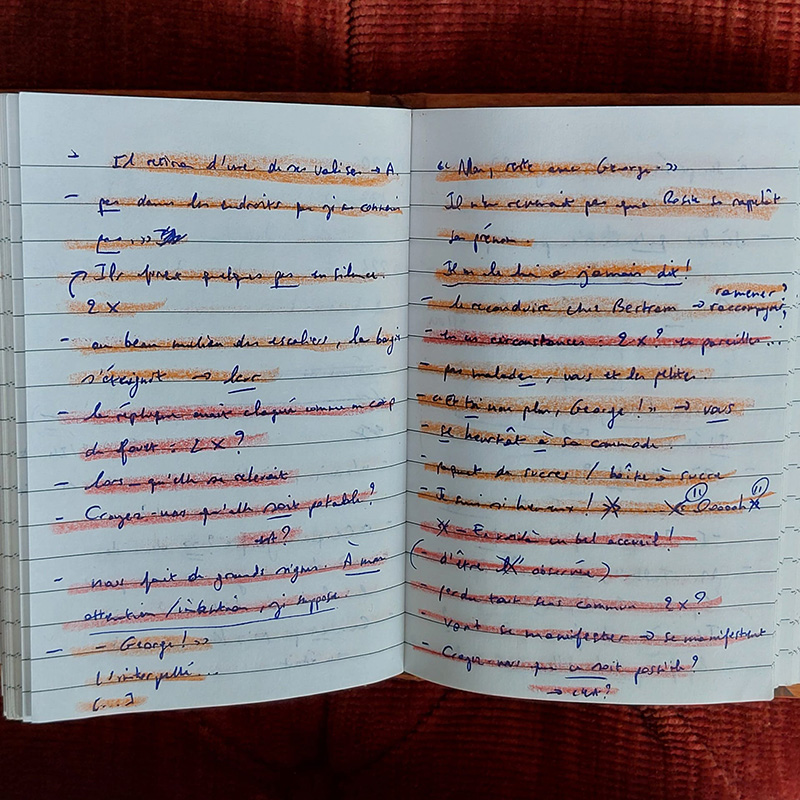 → Il retira d'une de ses valises → A.
- pas dans les endroits que je ne connais
pas, »
Ils firent quelques pas en silence.
2 x
- au beau milieu des escaliers, la bougie
s'éteignit → leur
- la réplique avait claqué comme un coup
de fouet : 2 x ?
- lors qu'elle se relevait
- Croyez-vous qu'elle soit potable ?
→ A ?
- nous fait de grands signes. À mon
attention / intention, je suppose.
- - George ! »
L'interpellé...
[...]
« Non, reste avec George. »
Il n'en revenait pas que Rosie se rappelât
son prénom.
Il ne le lui a jamais dit !
- la reconduire chez Bertram → ramener ?
raccompagner ?
- en ces circonstances : 2 x ? en pareilles ...
- pas malades, vous et les petites.
- « Et toi non plus, George ! » → vous
- se heurtât à sa commode.
- paquet de sucres / boîte à sucre
- Je suis si heureux ! Ooooooh
- En voilà un bel accueil !
(- d'être observée)
- perdu tout sens commun 2 x ?
- vont se manifester → se manifestent
- Croyez-vous que ce soit possible ?